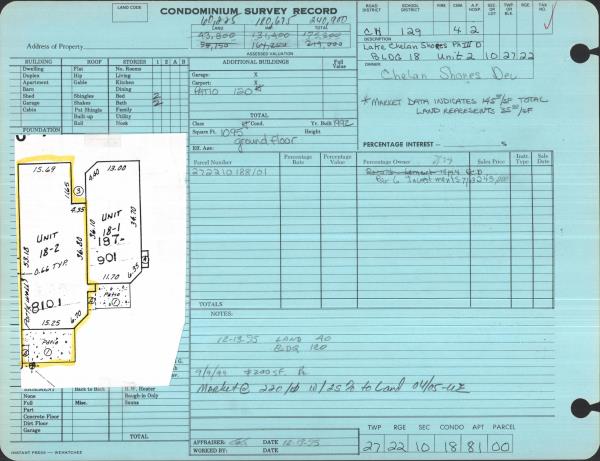 LAND CODE
CONDOMINIUM SURVEY RECORD
60,225 180,675 240,900
LAND TOTAL
43,800
54,750 164,250 219,000
ASSESSED VALUATION
Address of Property
ROAD DISTRICT SCHOOL DISTRICT FIRE CEMA H APT SEC OR LOT TWP OR BLK RGE TAX NO.
CH 129 4 2
DESCRIPTION
Lake Chelan Shores Ph III D
BLDG 18 Unit 2 10 27 22
OWNER
Chelan Shores Dev
* MARKET DATA INDICATES 145 00/SF TOTAL
LAND REPRESENTS 35 00/SF
BUILDING ROOFS STORIES B 1 2 A
Dwelling Flat No. Rooms
Duplex Hip Living
Apartment Gable Kitchen
Barn Dining
Shed Shingles Bed 2
Garage Shakes Bath 2
Cabin Pat Shingle Family
Built up Utility
Roll Nook
FOUNDATION
ADDITIONAL BUILDINGS Full Value
Garage: X
Carport: X
PATIO 120
TOTAL
Class Cond. Yr. Built 1992
Square Ft. 1095 Height
ground floor
Eff. Age:
PERCENTAGE INTEREST — %
Parcel Number Percentage Rate Percentage Value Percentage Owner Sales Price Inst. Type Sale Date
272210188101
TOTALS
NOTES:
12-13-95 LAND 40
BLDG 120
Market @ 220/ 10/25% to Land 04/05
15.69
11.65
4.35
3
UNIT
18-2
0.66 TYP.
53.18
36.80
8101
15.25
6.70
Patio
1
13.00
4.60
UNIT
18-1
197-
901
36.10
34.70
11.70
6.35
Patio
1
BASEMENT Back to Back H.W. Heater
None Rough-in Only
Full Misc. Sauna
Part
Concrete Floor
Dirt Floor
Garage
TOTAL
INSTANT PRESS — WENATCHEE
APPRAISER: DATE 12-13-95
WORKED BY: DATE
TWP RGE SEC CONDO APT PARCEL
27 22 10 18 81 00